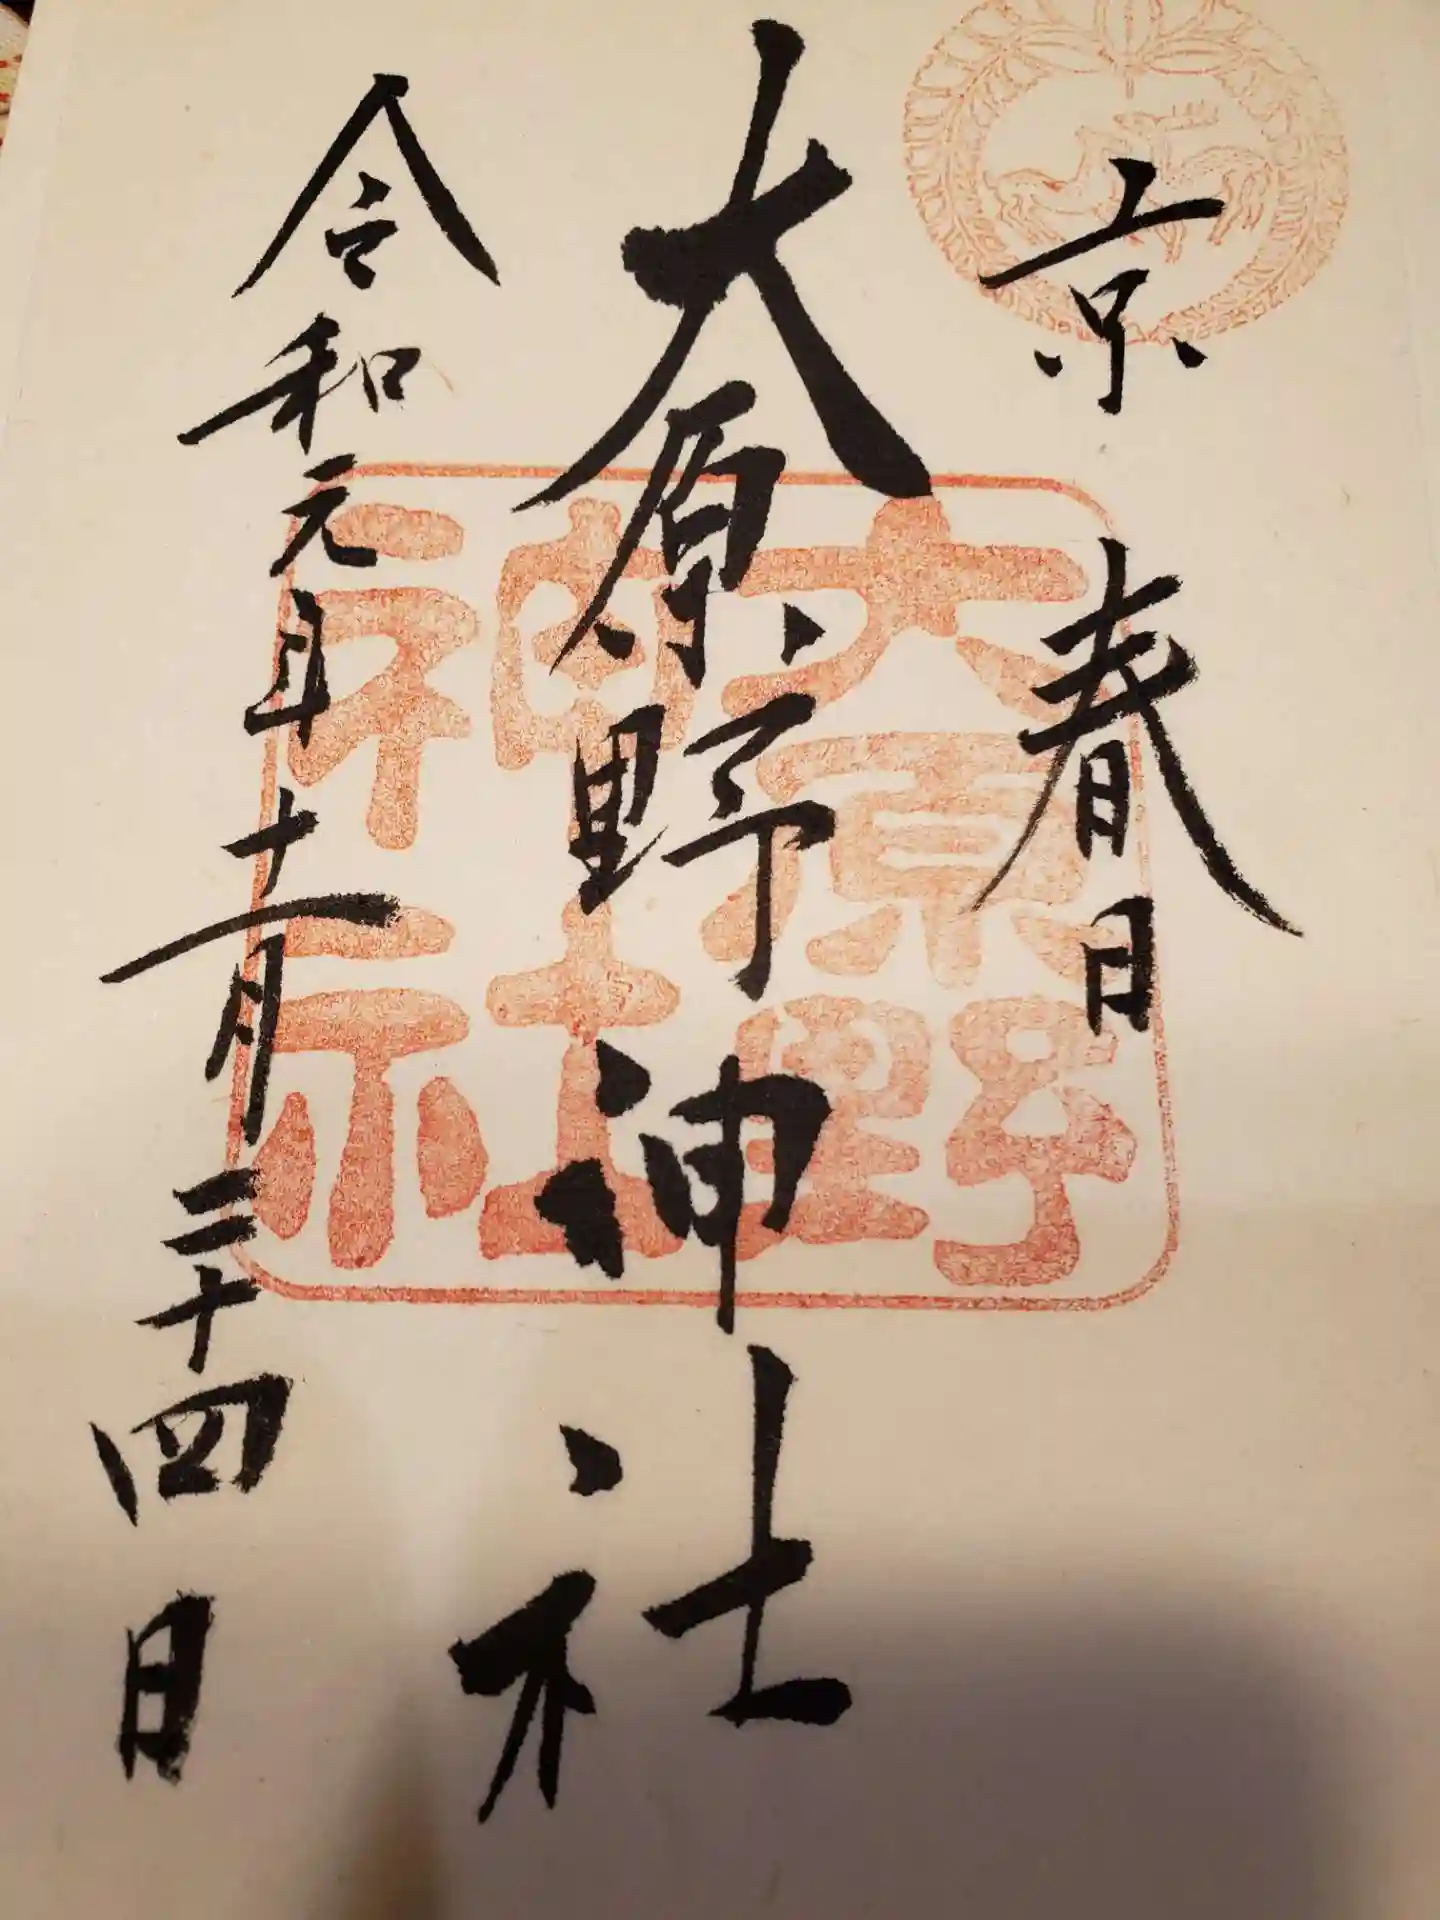 京 春日
大原野神社
令和元年十一月二十四日
大原野
神社